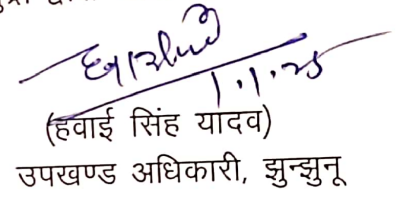 1.1.25
(हवाई सिंह यादव)
उपखण्ड अधिकारी, झुन्झुनू